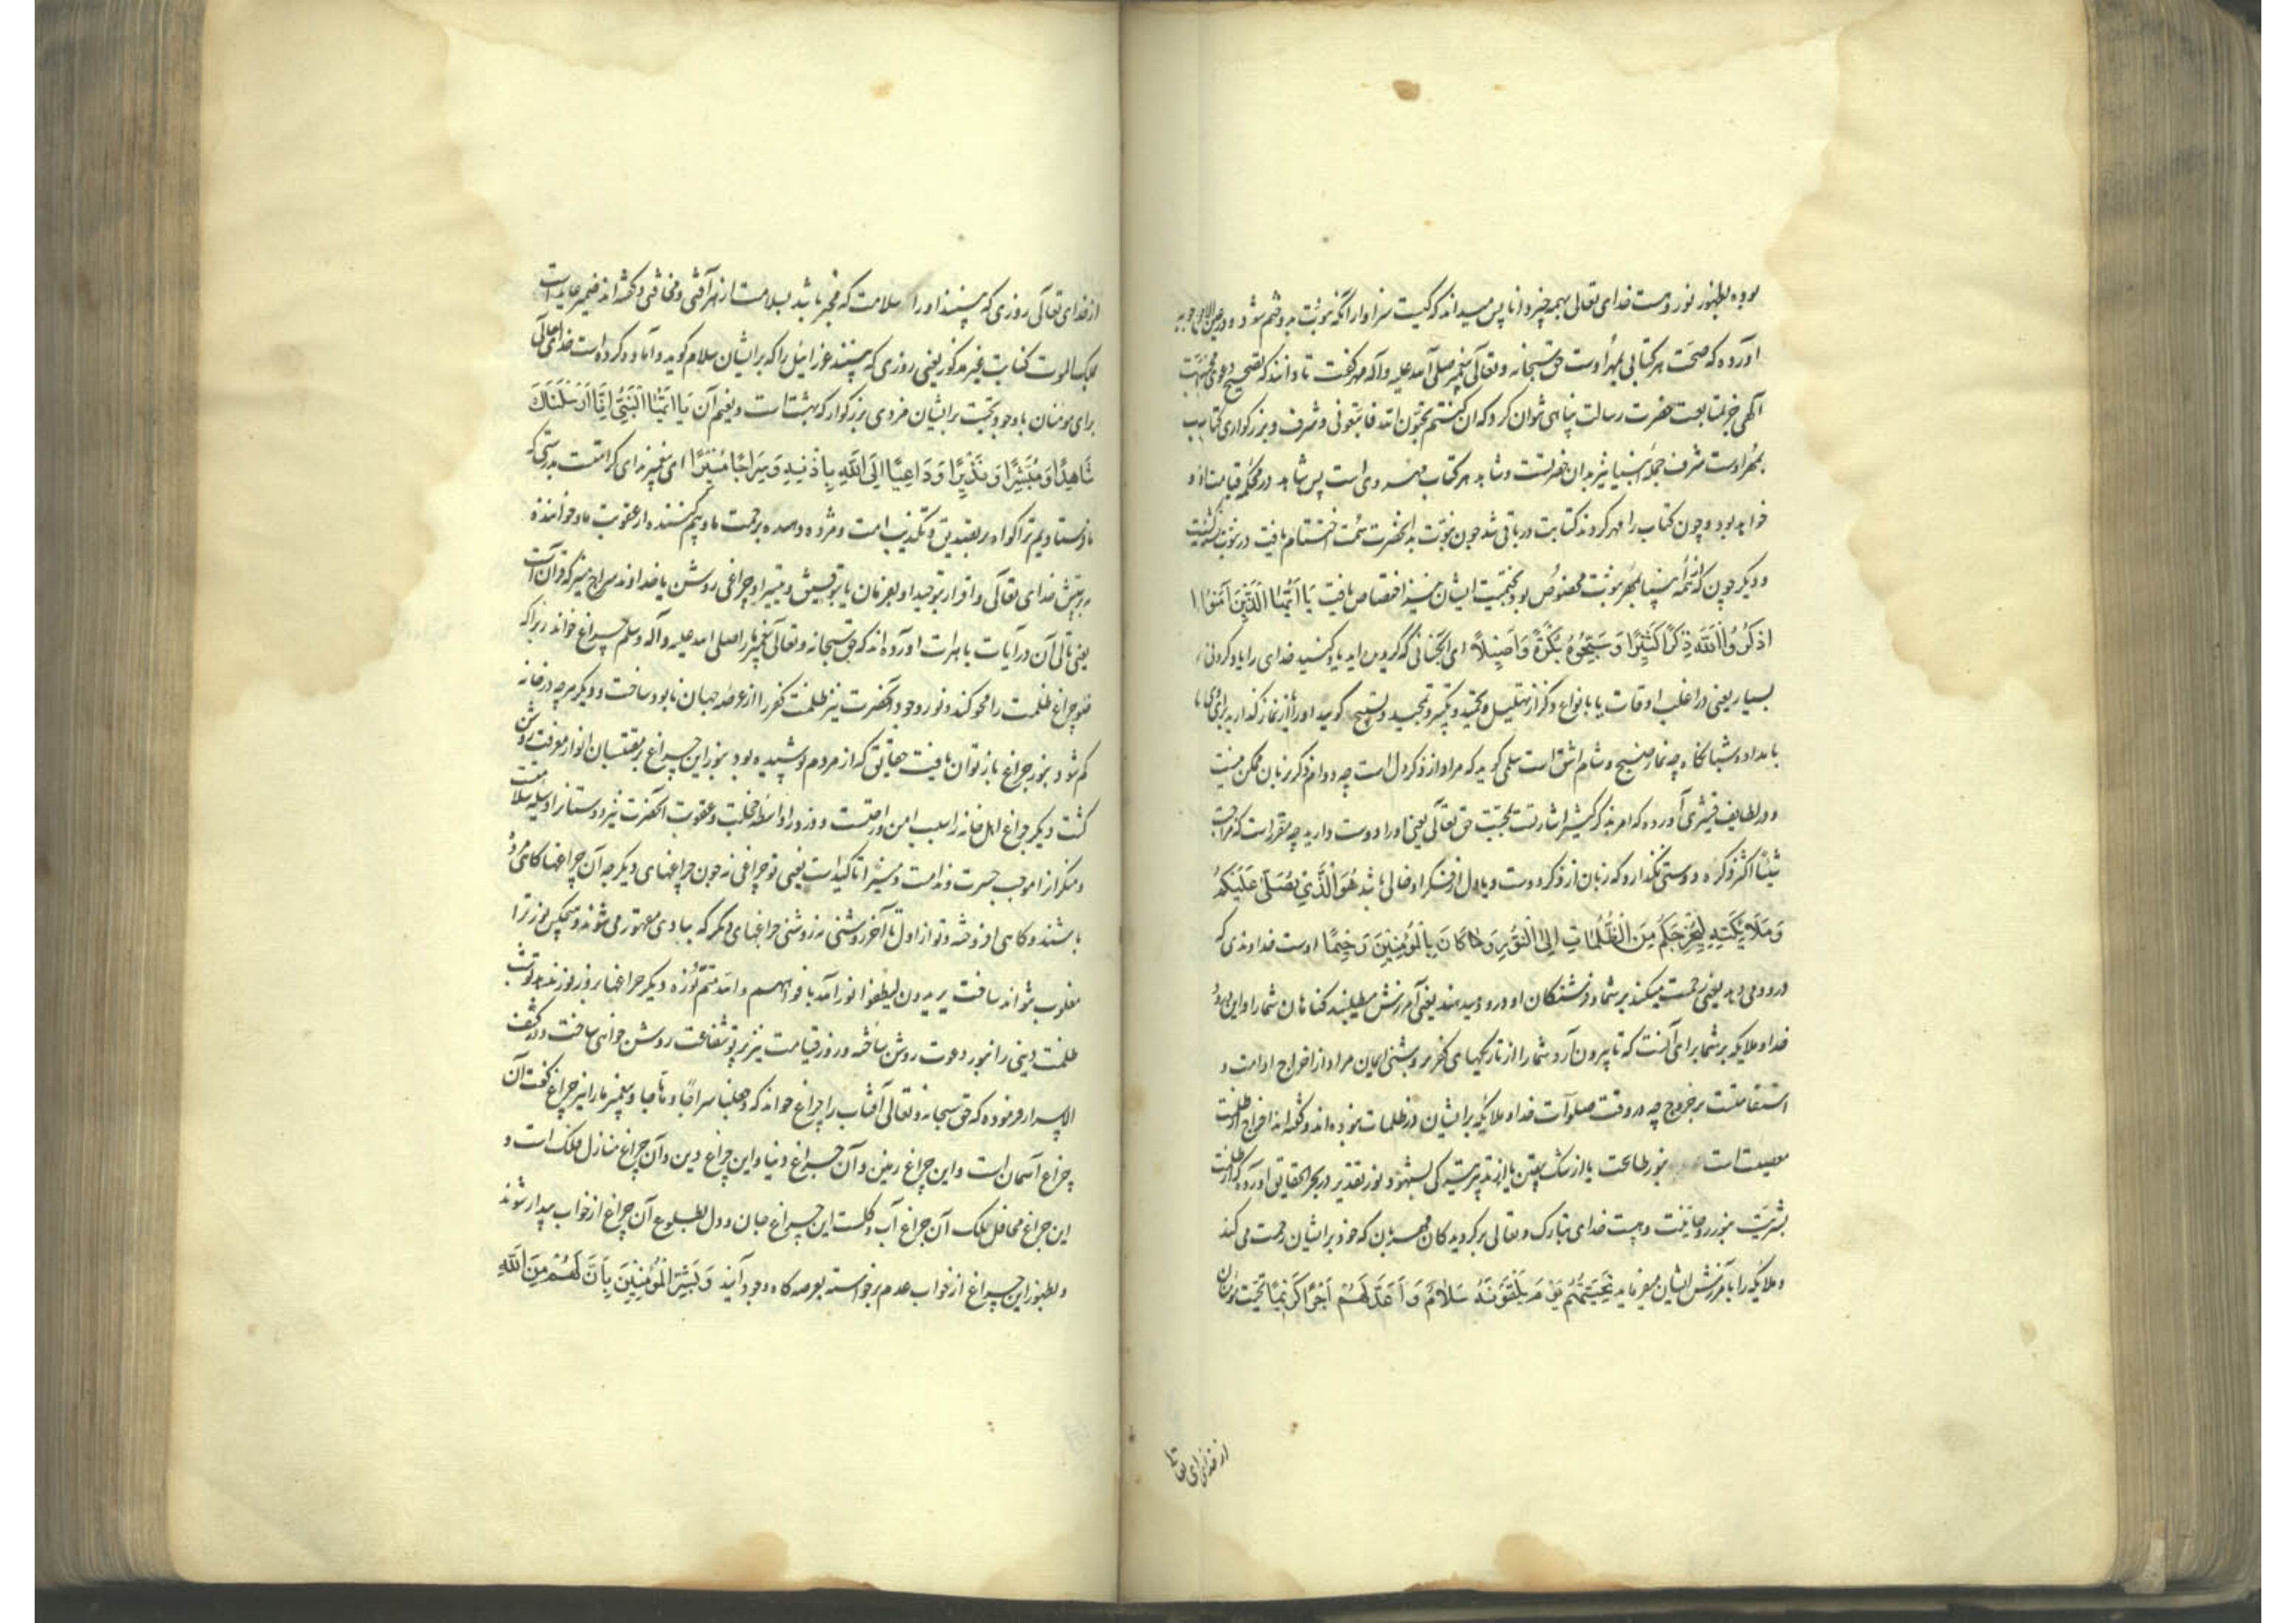 بوده بظهور نور وهست خدای تعالی بهمه چیز دانا پس میداند که کیست سزاوار آنکه نبوت بدو ختم شود و در عین الاجوبه
آورده که صحت هر کتابی بمهر اوست حق سبحانه وتعالی پیغمبر صلی الله علیه وآله مهر گفت تا دانند که تصحیح دعوی محبت
الهی جز بمتابعت حضرت رسالت پناهی نتوان کرد که ان کنتم تحبون الله فاتبعونی وشرف وبزرگواری کتاب بسبب
بمهر اوست شرف جمله انبیا نیز بدان حضرتست وشاهد هر کتاب مهر وی است پس شاهد در محکمه قیامت او
خواهد بود وچون کتاب را مهر کردند کتابت در باقی شد چون نبوت بدانحضرت سمت اختتام یافت در نبوت بسته گشت
ودیگر چون از همه انبیا بمهر نبوت مخصوص بود بختمیت ایشان نیز اختصاص یافت یَا اَیُّهَا الَّذِینَ آمَنُوا
اذْکُرُوا اللَّهَ ذِکْرًا کَثِیرًا وَسَبِّحُوهُ بُکْرَةً وَاَصِیلًا ای آنکسانی که گرویده اید یاد کنید خدای را یاد کردنی
بسیار یعنی در اغلب اوقات یا بانواع ذکر از تهلیل وتحمید وتکبیر وتمجید وتسبیح گویید اورا یا نماز گذارید برای وی
بامداد وشبانگاه چه نماز صبح وشام اشق است سلمی گوید که مراد از ذکر دل است چه دوام ذکر بزبان ممکن نیست
ودر لطایف قشیری آورده که امر بذکر کثیر اشارتست بمحبت حق تعالی یعنی اورا دوست دارید چه مقرر است که من احب
شیئا اکثر ذکره ودوستی نگذارد که زبان از ذکر دوست ویا دل از فکر او خالی باشد هُوَ الَّذِی یُصَلِّی عَلَیْکُمْ
وَمَلَائِکَتُهُ لِیُخْرِجَکُمْ مِنَ الظُّلُمَاتِ اِلَی النُّورِ وَکَانَ بِالْمُؤْمِنِینَ رَحِیمًا اوست خداوندی که
درود می دهد یعنی رحمت میکند بر شما وفرشتگان او درود میدهند یعنی آمرزش میطلبند گناهان شما را واین درود
خدا وملایکه بر شما برای آنست که تا بیرون آرد شما را از تاریکیهای کفر بروشنی ایمان مراد از اخراج ادامت و
استقامتست بر خروج چه در وقت صلوات خدا وملایکه بر ایشان در ظلمات نبوده اند وگفته اند اخراج از ظلمت
معصیت است بنور طاعت یا از شک بیقین یا از تدبیر بشهود نور تقدیر در بحر الحقایق آورده که از ظلمت
بشریت بنور روحانیت وهست خدای تبارک وتعالی بر گرویدگان مهربان که خود بر ایشان رحمت می کند
وملایکه را بآمرزش ایشان میفرماید تَحِیَّتُهُمْ یَوْمَ یَلْقَوْنَهُ سَلَامٌ وَاَعَدَّ لَهُمْ اَجْرًا کَرِیمًا تحیت مومنان
از خدای تعا
از خدای تعالی روزی که ببینند اورا سلامت که مخبر باشد بسلامت از هر آفتی ومخافتی وگفته اند ضمیر عاید است
بملک الموت کنایت غیر مذکور یعنی روزی که ببینند عزرائیل را که بر ایشان سلام گوید وآماده کرده است خدای تعالی
برای مومنان با وجود تحیت بر ایشان مزدی بزرگوار که بهشت است ونعیم آن یَا اَیُّهَا النَّبِیُّ اِنَّا اَرْسَلْنَاکَ
شَاهِدًا وَمُبَشِّرًا وَنَذِیرًا وَدَاعِیًا اِلَی اللَّهِ بِاِذْنِهِ وَسِرَاجًا مُنِیرًا ای پیغمبر ندای کرامتست بدرستی که
ما فرستادیم ترا گواه بر تصدیق وتکذیب امت ومژده دهنده برحمت ما وبیم کننده از عقوبت ما وخواننده
بپرستش خدای تعالی واقرار بتوحید او بفرمان یا بتوفیق وتیسیر او وچراغی روشن یا خداوند سراج منیر که قرآن است
یعنی تالی آن در آیات باهرات آورده اند که حق سبحانه وتعالی پیغمبر ما را صلی الله علیه وآله وسلم چراغ خواند زیرا که
ضوء چراغ ظلمت را محو کند ونور وجود آنحضرت نیز ظلمت کفر را از عرصه جهان نابود ساخت ودیگر هرچه در خانه
گم شود بنور چراغ باز توان یافت حقایق که از مردم پوشیده بود بنور این چراغ بر مقتبسان انوار معرفت روشن
گشت دیگر چراغ اهل خانه را سبب امن وراحتست ودزد را واسطه خجلت وعقوبت آنحضرت نیز دوستانرا وسیله سلامت
ومنکرانرا موجب حسرت وندامت ومنیرا تاکیدست یعنی تو چراغی نه چون چراغهای دیگر چه آن چراغها گاهی مرده
باشند وگاهی افروخته وتو از اول تا آخر روشنی نه روشنی چراغهای دیگر که ببادی مقهور می شوند وهیچکس نور ترا
مغلوب نتواند ساخت یریدون لیطفئوا نور الله بافواههم والله متم نوره دیگر چراغها بروز نور ندهند وتو شب
ظلمت دینی را بنور دعوت روشن ساخته ودر روز قیامت نیز بپرتو شفاعت روشن خواهی ساخت ودر کشف
الاسرار فرموده که حق سبحانه وتعالی آفتاب را چراغ خواند که وجعلنا سراجا وهاجا وپیغمبر ما را نیز چراغ گفت آن
چراغ آسمان است واین چراغ زمین وآن چراغ دنیا واین چراغ دین وآن چراغ منازل فلک است و
این چراغ محافل ملک آن چراغ آب وگلست این چراغ جان ودل بطلوع آن چراغ از خواب بیدار شوند
وبظهور این چراغ از خواب عدم برخواسته بعرصه گاه وجود آیند وَبَشِّرِ الْمُؤْمِنِینَ بِاَنَّ لَهُمْ مِنَ اللَّهِ